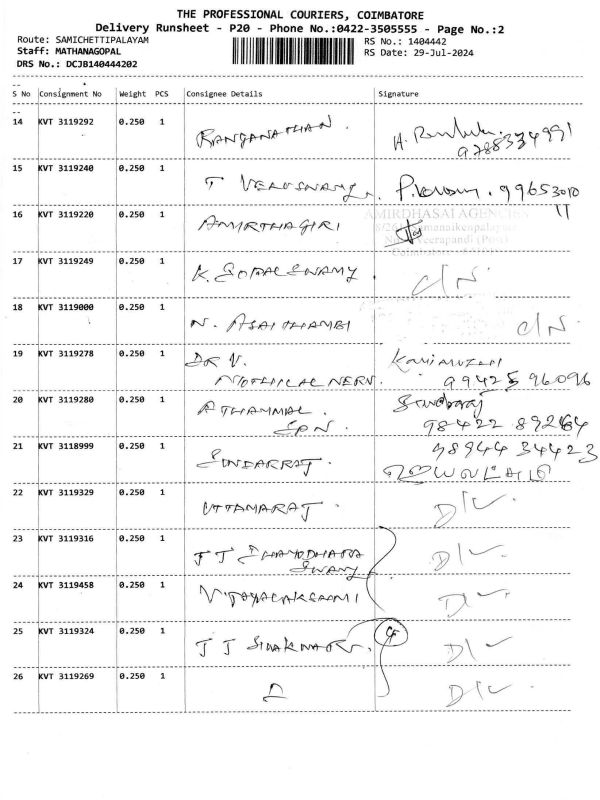 THE PROFESSIONAL COURIERS, COIMBATORE
Delivery Runsheet - P20 - Phone No.:0422-3505555 - Page No.:2
Route: SAMICHETTIPALAYAM RS No.: 1404442
Staff: MATHANAGOPAL RS Date: 29-Jul-2024
DRS No.: DCJB140444202
S No Consignment No Weight PCS Consignee Details Signature
14 KVT 3119292 0.250 1
RANGANATHAN.
9788334991
15 KVT 3119240 0.250 1
T VELUSWAMY
16 KVT 3119220 0.250 1 AMIRDHASAI AGENCIES
AMIRTHAGIRI
17 KVT 3119249 0.250 1
K. GOPALSWAMY. C/N.
18 KVT 3119000 0.250 1
N. ASAITHAMBI C/N.
19 KVT 3119278 0.250 1
DR V.
99425 96096
20 KVT 3119280 0.250 1
ATHAMMAL.
21 KVT 3118999 0.250 1 98944 34423
SUNDARRAJ.
22 KVT 3119329 0.250 1
UTTAMARAJ. D/L
23 KVT 3119316 0.250 1
D/L
24 KVT 3119458 0.250 1
VIJAYALAKSHMI D/L
25 KVT 3119324 0.250 1
D/L
26 KVT 3119269 0.250 1
D/L